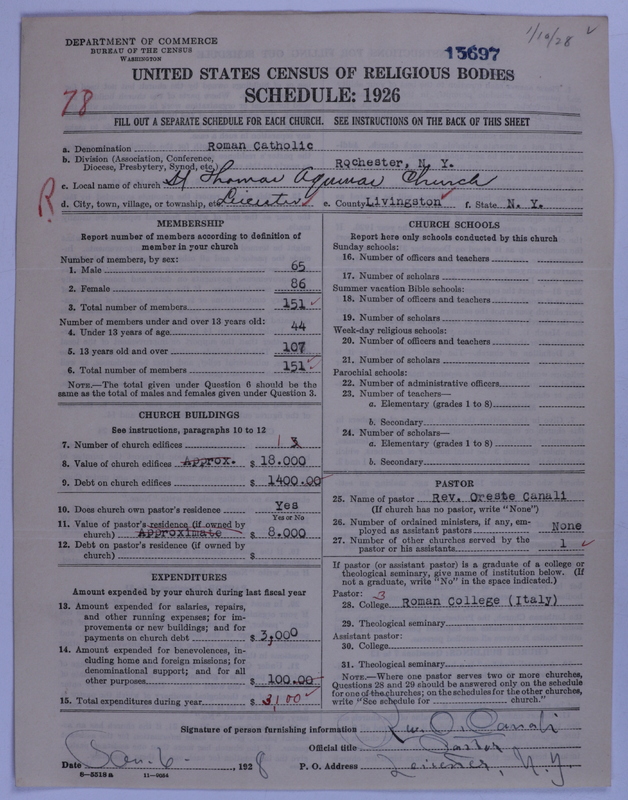 DEPARTMENT OF COMMERCE
BUREAU OF THE CENSUS
WASHINGTON
15697
1/10/28
UNITED STATES CENSUS OF RELIGIOUS BODIES
SCHEDULE: 1926
78
FILL OUT A SEPARATE SCHEDULE FOR EACH CHURCH. SEE INSTRUCTIONS ON THE BACK OF THIS SHEET
a. Denomination Roman Catholic
b. Division (Association, Conference, Diocese, Presbytery, Synod, etc.) Rochester, N. Y.
c. Local name of church St Thomas Aquinas Church
R.
d. City, town, village, or township, etc. Leicester e. County Livingston f. State N. Y.
MEMBERSHIP
Report number of members according to definition of
member in your church
Number of members, by sex:
1. Male 65
2. Female 86
3. Total number of members 151
Number of members under and over 13 years old:
4. Under 13 years of age 44
5. 13 years old and over 107
6. Total number of members 151
NOTE.—The total given under Question 6 should be the
same as the total of males and females given under Question 3.
CHURCH BUILDINGS
See instructions, paragraphs 10 to 12
7. Number of church edifices 1 3
8. Value of church edifices Approx. $ 18.000
9. Debt on church edifices $ 1400.00
10. Does church own pastor's residence Yes
Yes or No
11. Value of pastor's residence (if owned by
church) Approximate $ 8.000
12. Debt on pastor's residence (if owned by
church) $
EXPENDITURES
Amount expended by your church during last fiscal year
13. Amount expended for salaries, repairs,
and other running expenses; for im-
provements or new buildings; and for
payments on church debt $ 3,000
14. Amount expended for benevolences, in-
cluding home and foreign missions; for
denominational support; and for all
other purposes $ 100.00
15. Total expenditures during year $ 3,100
CHURCH SCHOOLS
Report here only schools conducted by this church
Sunday schools:
16. Number of officers and teachers
17. Number of scholars
Summer vacation Bible schools:
18. Number of officers and teachers
19. Number of scholars
Week-day religious schools:
20. Number of officers and teachers
21. Number of scholars
Parochial schools:
22. Number of administrative officers
23. Number of teachers—
a. Elementary (grades 1 to 8)
b. Secondary
24. Number of scholars—
a. Elementary (grades 1 to 8)
b. Secondary
PASTOR
25. Name of pastor Rev. Oreste Canali
(If church has no pastor, write "None")
26. Number of ordained ministers, if any, em-
ployed as assistant pastors None
27. Number of other churches served by the
pastor or his assistants 1
If pastor (or assistant pastor) is a graduate of a college or
theological seminary, give name of institution below. (If
not a graduate, write "No" in the space indicated.)
Pastor: 3
28. College Roman College (Italy)
29. Theological seminary
Assistant pastor:
30. College
31. Theological seminary
NOTE.—Where one pastor serves two or more churches,
Questions 28 and 29 should be answered only on the schedule
for one of the churches; on the schedules for the other churches,
write "See schedule for church."
Signature of person furnishing information Rev. O. Canali
Official title Pastor
Date Jan. 6 , 1928 P. O. Address Leicester, N. Y.
8—5518a 11—9084